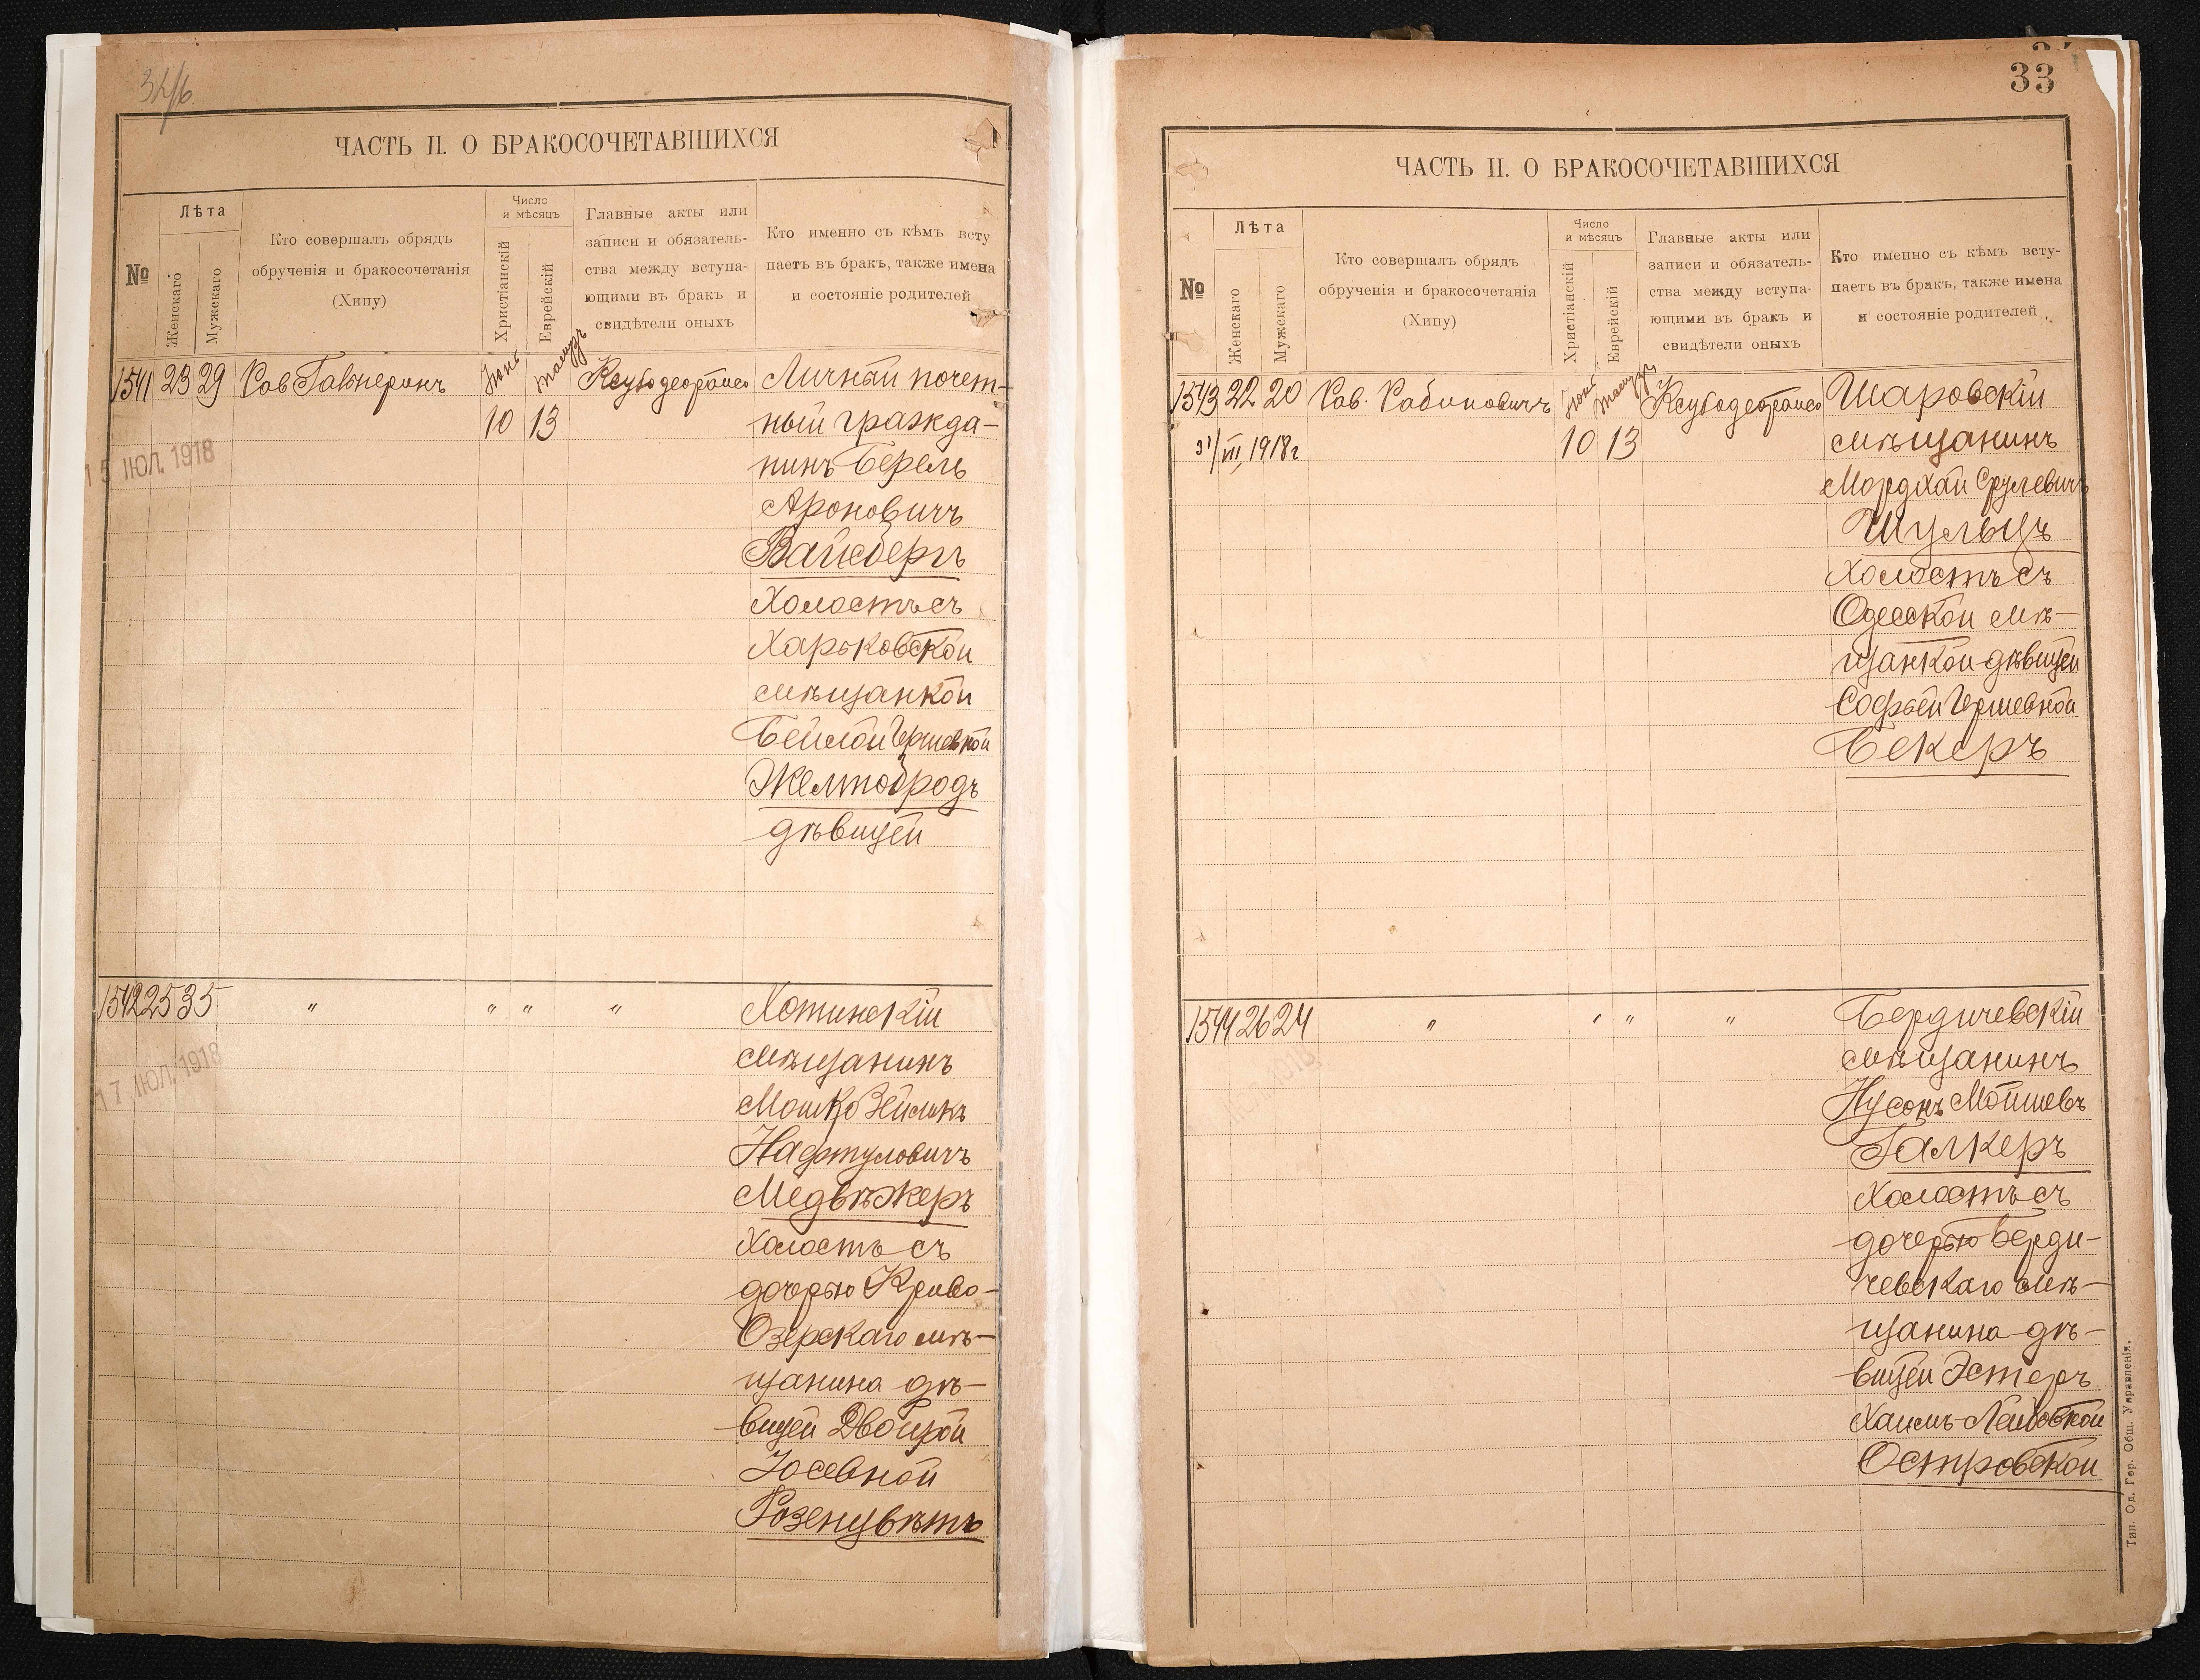 32/б
ЧАСТЬ II. О БРАКОСОЧЕТАВШИХСЯ
№
Лѣта
Женскаго
Мужскаго
Кто совершалъ обрядъ
обрученія и бракосочетанія
(Хипу)
Число
и мѣсяцъ
Христіанскій
Еврейскій
Главные акты или
записи и обязатель-
ства между вступа-
ющими въ бракъ и
свидѣтели оныхъ
Кто именно съ кѣмъ всту
паетъ въ бракъ, также имена
и состояніе родителей
1541 23 29 Рав Гальперинъ Іюнь Тамузъ Ксубо деорайсо Личный почет-
10 13 ный гражда-
15 ІЮЛ. 1918
нинъ Берель
Ароновичъ
Вайсбергъ
Холостъ съ
Харьковской
мѣщанкой
Бейлой Гершевной
Желтобродъ
дѣвицей
1542 25 35 " " " " Хотинскій
17 ІЮЛ. 1918
мѣщанинъ
Мошко Зейликъ
Нафтуловичъ
Медвѣжеръ
Холостъ съ
дочерью Криво-
Озерскаго мѣ-
щанина дѣ-
вицей Двойрой
Іосевной
Розенцвѣтъ
33
ЧАСТЬ II. О БРАКОСОЧЕТАВШИХСЯ
№
Лѣта
Женскаго
Мужскаго
Кто совершалъ обрядъ
обрученія и бракосочетанія
(Хипу)
Число
и мѣсяцъ
Христіанскій
Еврейскій
Главные акты или
записи и обязатель-
ства между вступа-
ющими въ бракъ и
свидѣтели оныхъ
Кто именно съ кѣмъ всту-
паетъ въ бракъ, также имена
и состояніе родителей
1543 22 20 Рав. Рабиновичъ Іюнь Тамузъ Ксубо деорайсо Шаровскій
31/VII, 1918г 10 13 мѣщанинъ
Мордхай Срулевичъ
Шульцъ
Холостъ съ
Одесской мѣ-
щанкой дѣвицей
Софьей Гершевной
Бекеръ
1544 26 24 " " " " Бердичевскій
мѣщанинъ
Нусонъ Мойшевъ
Галкеръ
Холостъ съ
дочерью Берди-
чевскаго мѣ-
щанина дѣ-
вицей Эстеръ
Хаимъ-Лейбовной
Островской
Тип. Од. Гор. Общ. Управленія.